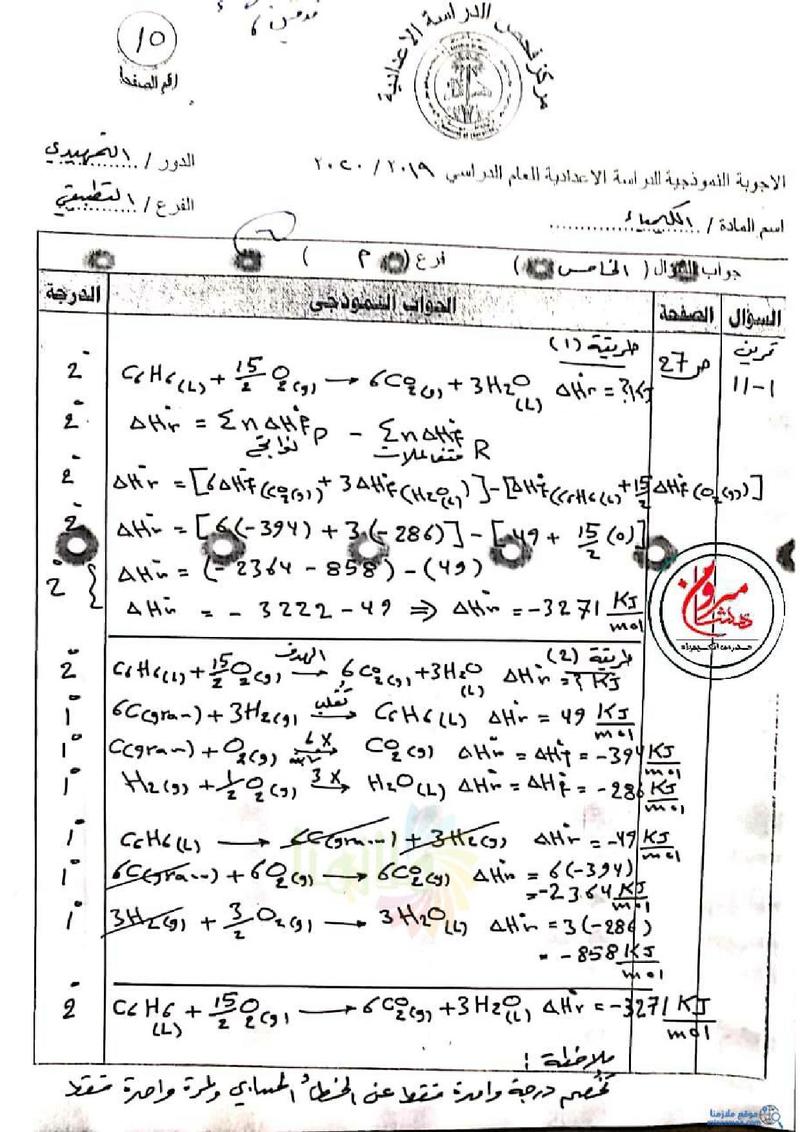 ١٥
رقم الصفحة
مركز فحص الدراسة الاعدادية
الاجوبة النموذجية للدراسة الاعدادية للعام الدراسي ٢٠١٩ / ٢٠٢٠
الدور / التمهيدي
اسم المادة / الكيمياء
الفرع / التطبيقي
جواب السؤال ( الخامس ) فرع ( م )
السؤال الصفحة الجواب النموذجي الدرجة
تمرين ص 27 طريقة (1)
11-1
C6H6(L) + 15/2 O2(g) → 6CO2(g) + 3H2O(L) ΔH°r = ? KJ 2°
ΔH°r = ΣnΔH°f P نواتج − ΣnΔH°f R متفاعلات 2°
ΔH°r = [6ΔH°f(CO2(g)) + 3ΔH°f(H2O(L))] − [ΔH°f(C6H6(L)) + 15/2 ΔH°f(O2(g))] 2°
ΔH°r = [6(-394) + 3(-286)] − [49 + 15/2 (0)] 2°
ΔH°r = (-2364 - 858) - (49)
ΔH°r = -3222 - 49 ⇒ ΔH°r = -3271 KJ/mol 2°
طريقة (2)
C6H6(L) + 15/2 O2(g) الهدف → 6CO2(g) + 3H2O(L) ΔH°r = ? KJ 2°
6C(gra) + 3H2(g) تقلب → C6H6(L) ΔH°r = 49 KJ/mol 1°
C(gra) + O2(g) 6X → CO2(g) ΔH°r = ΔH°f = -394 KJ/mol 1°
H2(g) + 1/2 O2(g) 3X → H2O(L) ΔH°r = ΔH°f = -286 KJ/mol 1°
C6H6(L) → 6C(gra) + 3H2(g) ΔH°r = -49 KJ/mol 1°
6C(gra) + 6O2(g) → 6CO2(g) ΔH°r = 6(-394) 1°
= -2364 KJ/mol
3H2(g) + 3/2 O2(g) → 3H2O(L) ΔH°r = 3(-286) 1°
= -858 KJ/mol
C6H6(L) + 15/2 O2(g) → 6CO2(g) + 3H2O(L) ΔH°r = -3271 KJ/mol 2°
ملاحظة :
تخصم درجة واحدة فقط عن الخطأ الحسابي ولمرة واحدة فقط
موقع ملازمنا